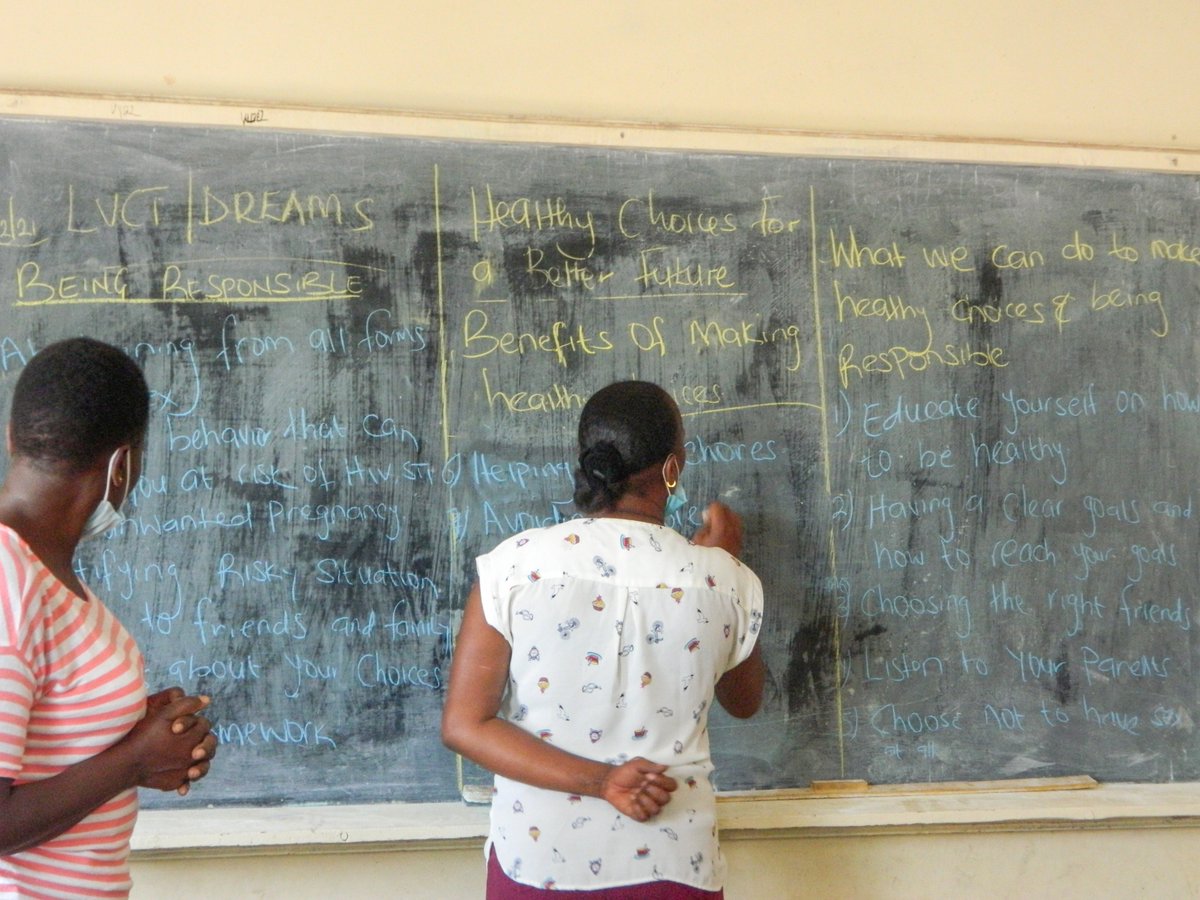 LVCT | DREAMS
BEING RESPONSIBLE
from all forms
behavior that can
you at risk of HIV STI
unwanted Pregnancy
Risky situation
to friends and family
about your Choices
Healthy Choices for
a Better future
Benefits Of Making
Helping
Chores
What we can do to make
healthy choices & being
Responsible
1) Educate yourself on how
to be healthy
2) Having a clear goals and
how to reach your goals
3) Choosing the right friends
Listen to Your Parents
Choose not to have sex
at all